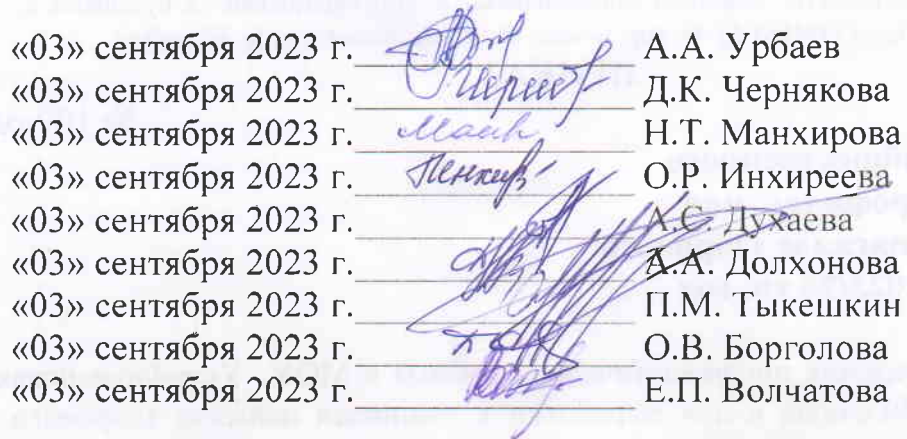 «03» сентября 2023 г. А.А. Урбаев
«03» сентября 2023 г. Д.К. Чернякова
«03» сентября 2023 г. Н.Т. Манхирова
«03» сентября 2023 г. О.Р. Инхиреева
«03» сентября 2023 г. А.С. Духаева
«03» сентября 2023 г. А.А. Долхонова
«03» сентября 2023 г. П.М. Тыкешкин
«03» сентября 2023 г. О.В. Борголова
«03» сентября 2023 г. Е.П. Волчатова